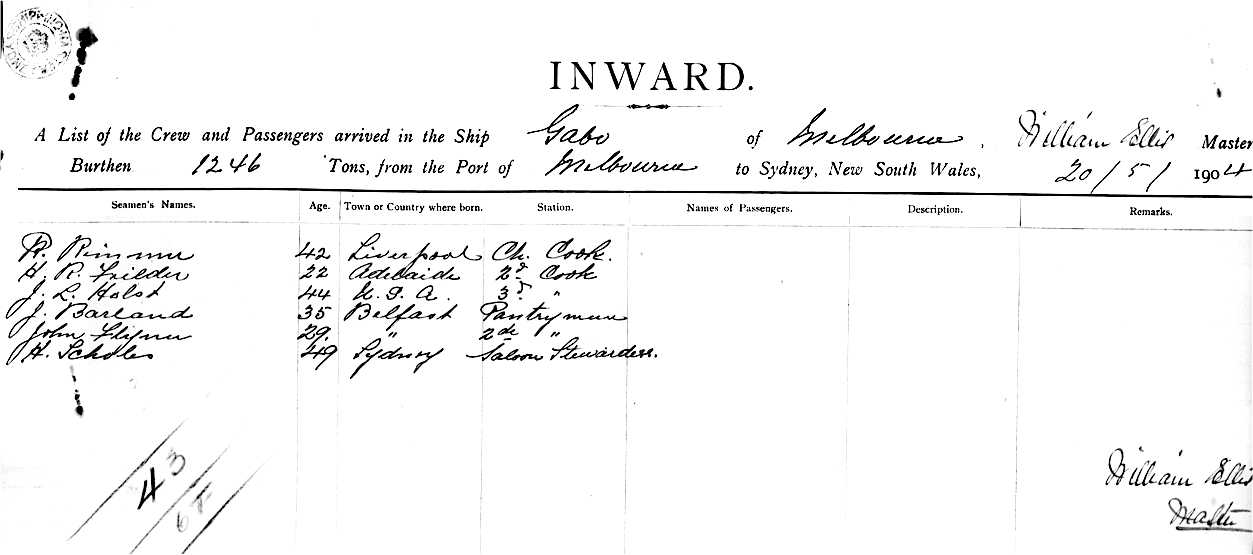 INWARD.
A List of the Crew and Passengers arrived in the Ship Gabo of Melbourne, William Ellis Master
Burthen 1246 Tons, from the Port of Melbourne to Sydney, New South Wales, 20/5/ 1904
Seamen's Names. Age. Town or Country where born. Station. Names of Passengers. Description. Remarks.
R. Rimmer 42 Liverpool Ch. Cook.
H. R. 22 Adelaide 2d Cook
J. L. Holst 44 U.S.A. 3d "
J. Barland 35 Belfast Pantryman
John Flynn 29. " 2de "
H. Scholes 49 Sydney Saloon Stewardess.
43
William Ellis
Master